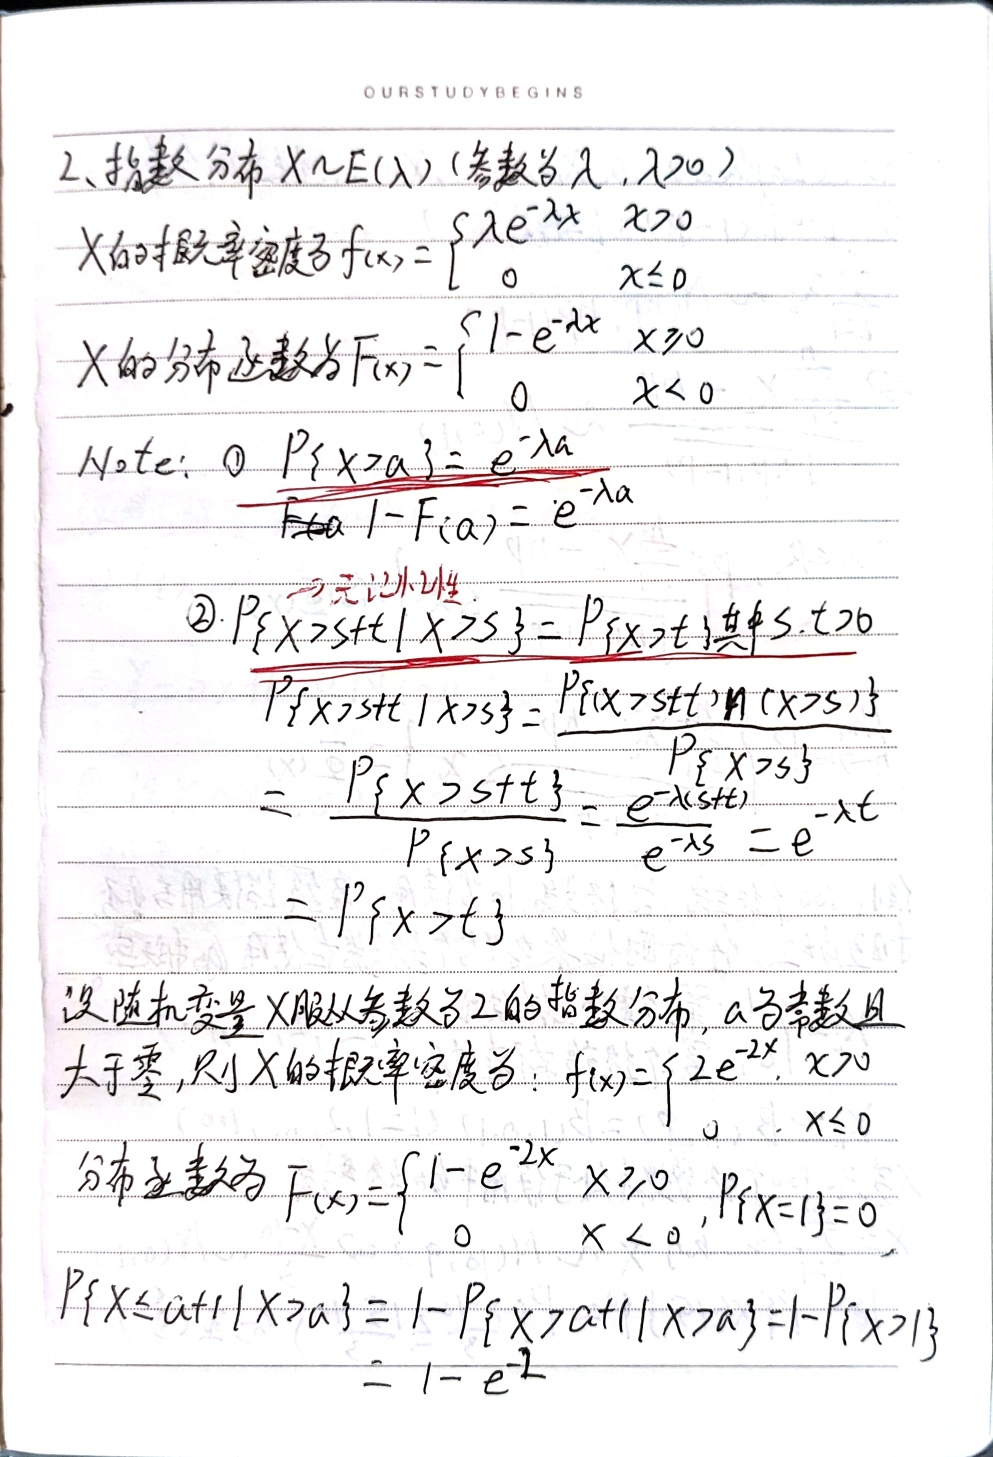 OURSTUDYBEGINS
2、指数分布 X~E(λ) (参数为λ, λ>0)
X的概率密度为 f(x) = { λe^{-λx} x>0
0 x≤0
X的分布函数为 F(x) = { 1-e^{-λx} x≥0
0 x<0
Note: ① P{X>a} = e^{-λa}
1-F(a) = e^{-λa}
→无记忆性.
②. P{X>s+t | X>s} = P{X>t} 其中 s.t>0
P{X>s+t | X>s} = P{(X>s+t)∩(X>s)} / P{X>s}
= P{X>s+t} / P{X>s} = e^{-λ(s+t)} / e^{-λs} = e^{-λt}
= P{X>t}
设随机变量X服从参数为2的指数分布, a为常数且
大于零, 则X的概率密度为: f(x) = { 2e^{-2x}. x>0
0 . x≤0
分布函数为 F(x) = { 1-e^{-2x} x≥0
0 x<0 , P{X=1}=0
P{X≤a+1 | X>a} = 1-P{X>a+1 | X>a} = 1-P{X>1}
= 1-e^{-2}